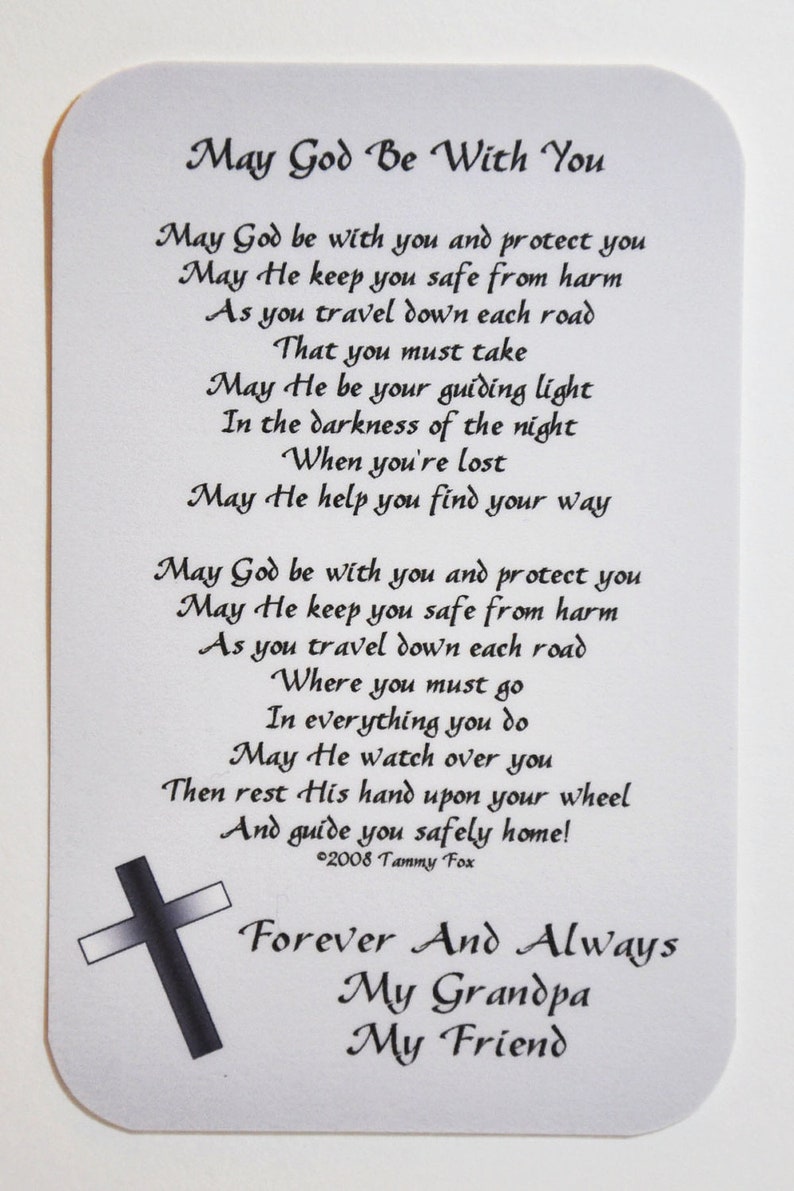 May God Be With You
May God be with you and protect you
May He keep you safe from harm
As you travel down each road
That you must take
May He be your guiding light
In the darkness of the night
When you're lost
May He help you find your way
May God be with you and protect you
May He keep you safe from harm
As you travel down each road
Where you must go
In everything you do
May He watch over you
Then rest His hand upon your wheel
And guide you safely home!
©2008 Tammy Fox
Forever And Always
My Grandpa
My Friend